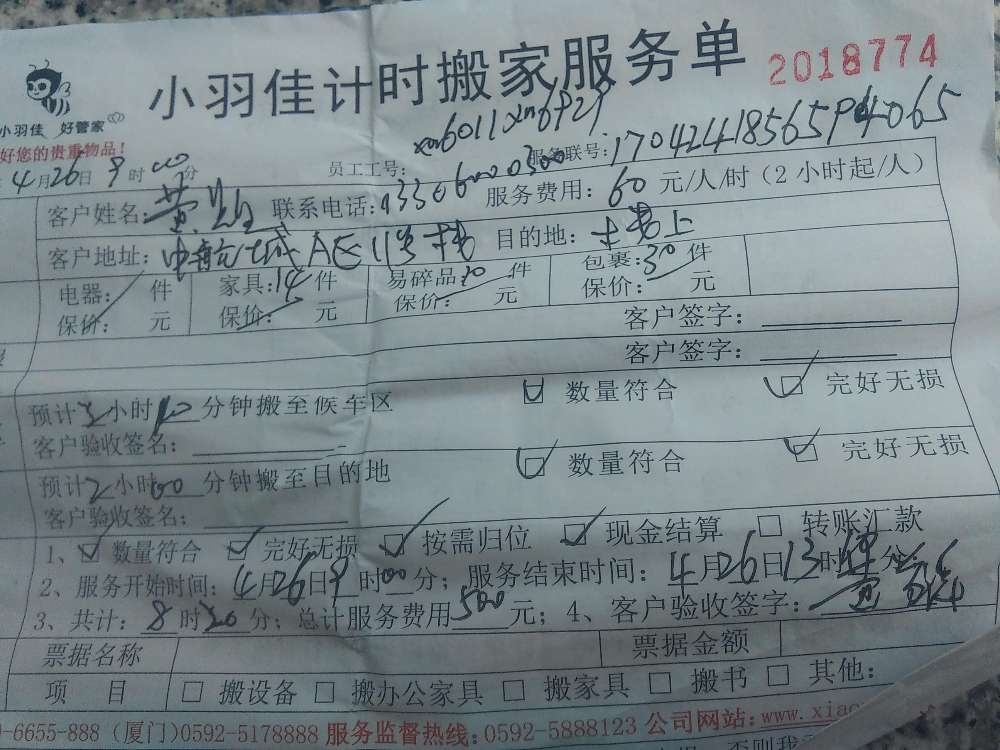 小羽佳计时搬家服务单 2018774
小羽佳 好管家
好您的贵重物品！
xm6011 xm6929
4月26日9时00分 员工工号： 服务联号：
客户姓名： 联系电话： 服务费用：60元/人/时（2小时起/人）
客户地址：中航城A区11号楼 目的地：
电器： 件 家具：14件 易碎品： 件 包裹：30件
保价： 元 保价： 元 保价： 元 保价： 元
客户签字：
客户签字：
预计 小时 分钟搬至候车区 数量符合 完好无损
客户验收签名：
预计2小时00分钟搬至目的地 数量符合 完好无损
客户验收签名：
1、数量符合 完好无损 按需归位 现金结算 转账汇款
2、服务开始时间：4月26日9时00分；服务结束时间：4月26日13时 分；
3、共计：8时20分；总计服务费用500元；4、客户验收签字：
票据名称 票据金额
项 目 搬设备 搬办公家具 搬家具 搬书 其他：
-6655-888 (厦门)0592-5178888 服务监督热线：0592-5888123 公司网站：www.xiao